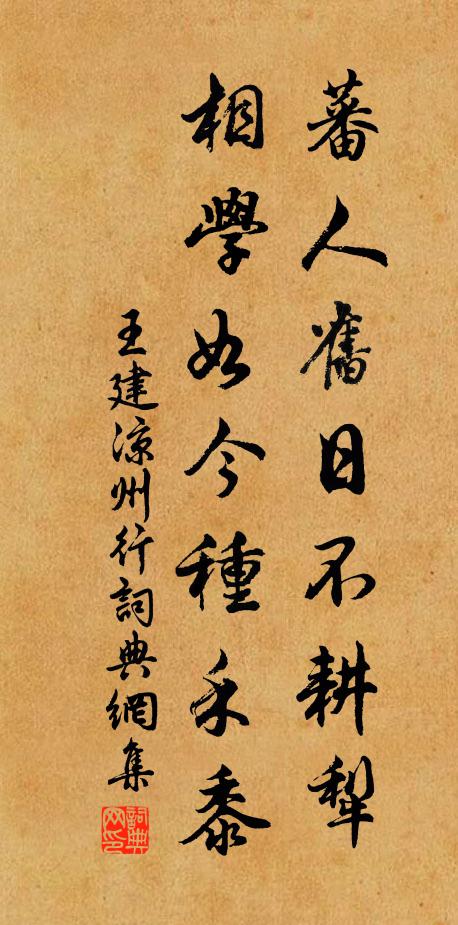 蕃人舊日不耕犂
相學如今種禾黍
王建涼州行詞典網集
詞典网印